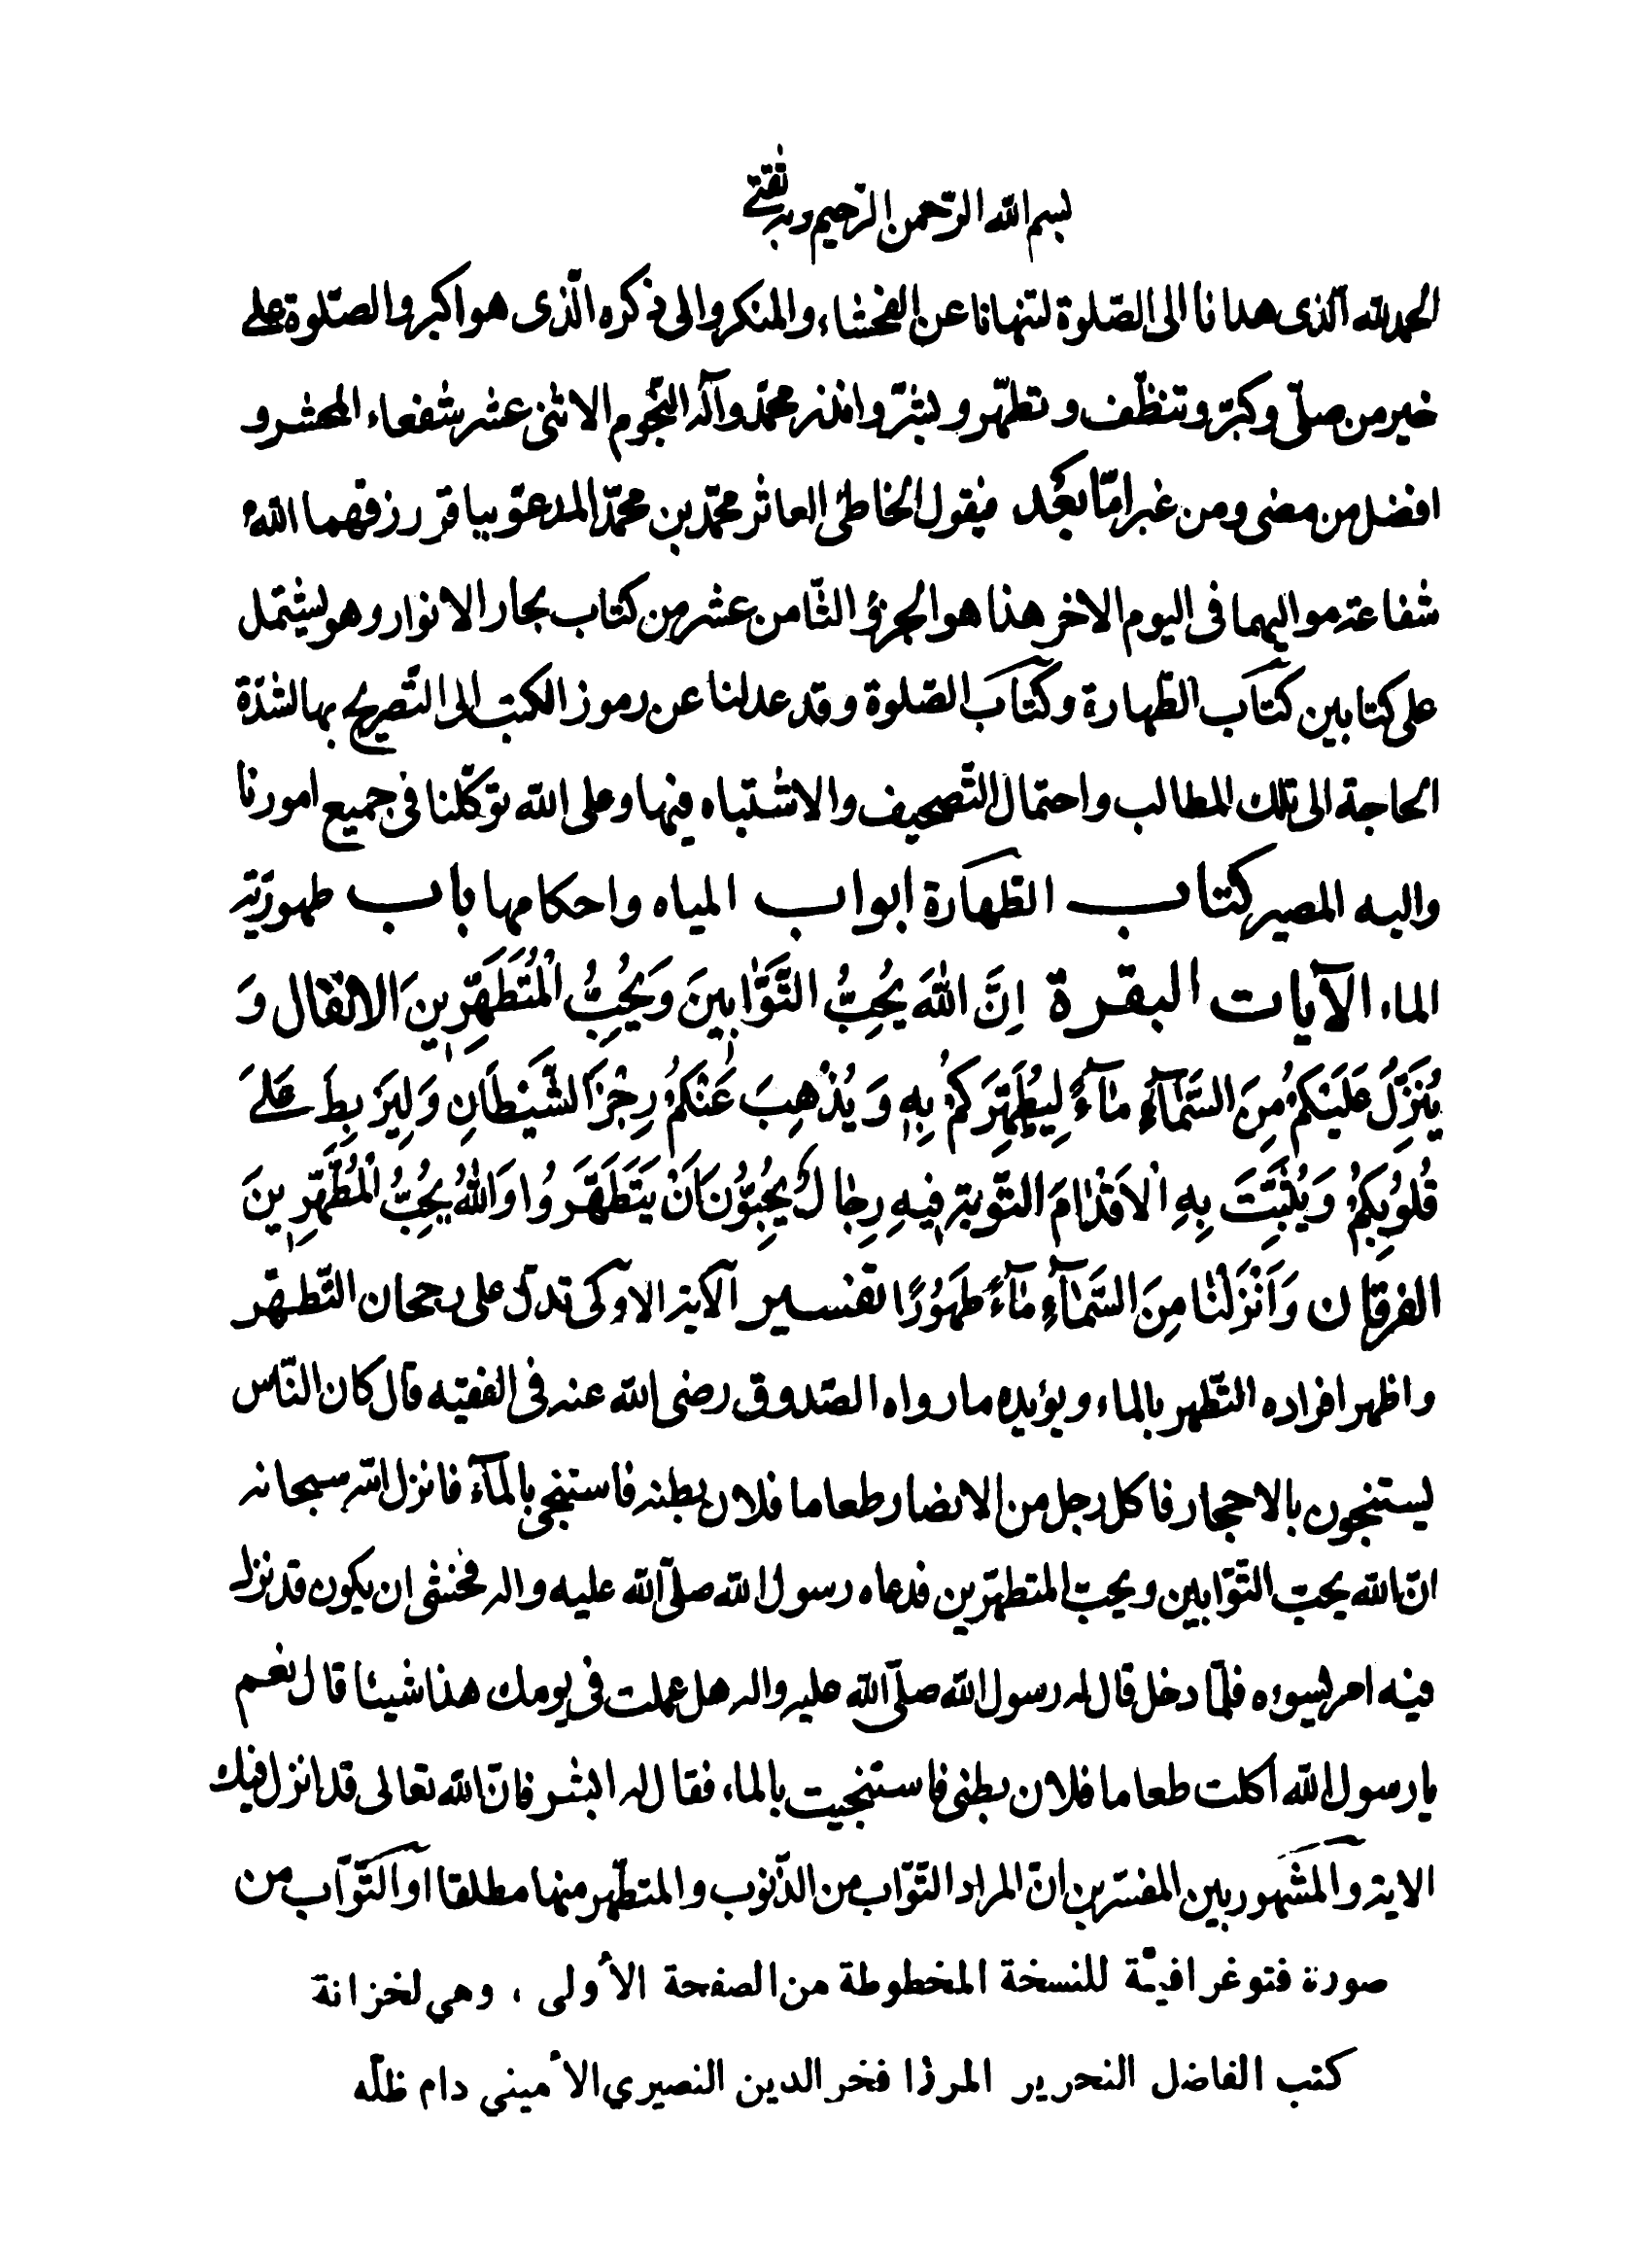 بسم الله الرّحمن الرّحيم وبه ثقتى
الحمد لله الّذى هدانا الى الصّلوة لتنهانا عن الفحشاء والمنكر والى ذكره الّذى هو اكبر والصّلوة على
خير من صلّى وكبّر وتنظّف وتطهّر وبشّر وانذر محمّد وآله النّجوم الاثنى عشر شفعاء المحشر و
افضل من مضى ومن غبر امّا بعد فيقول الخاطئ العاثر محمّد بن محمّد المدعوّ بباقر رزقهما الله
شفاعة مواليهما فى اليوم الاخر هذا هو الجزؤ الثّامن عشر من كتاب بحار الانوار وهو يشتمل
على كتابين كتاب الطّهارة وكتاب الصّلوة وقد عدلنا عن رموز الكتب الى التّصريح بها لشدّة
الحاجة الى تلك المطالب واحتمال التّصحيف والاشتباه فيها وعلى الله توكّلنا فى جميع امورنا
واليه المصير كتاب الطّهارة ابواب المياه واحكامها باب طهوريّة
الماء الآيات البقرة اِنَّ اللّٰهَ يُحِبُّ التَّوّٰابِينَ وَيُحِبُّ الْمُتَطَهِّرِينَ الانفال وَ
يُنَزِّلُ عَلَيْكُمْ مِنَ السَّمٰآءِ مٰآءً لِيُطَهِّرَكُمْ بِهِ وَيُذْهِبَ عَنْكُمْ رِجْزَ الشَّيْطَانِ وَلِيَرْبِطَ عَلىَ
قُلُوبِكُمْ وَيُثَبِّتَ بِهِ الْاَقْدٰامَ التّوبة فِيهِ رِجٰالٌ يُحِبُّونَ اَنْ يَتَطَهَّرُوا وَاللّٰهُ يُحِبُّ الْمُطَّهِّرِينَ
الفرقان وَاَنْزَلْنٰا مِنَ السَّمٰآءِ مٰآءً طَهُورًا تفسير الآية الاولى تدلّ على رجحان التّطهّر
واظهر افراده التّطهر بالماء ويؤيده ما رواه الصّدوق رضى الله عنه فى الفقيه قال كان النّاس
يستنجون بالاحجار فاكل رجل من الانصار طعاما فلان بطنه فاستنجى بالمآء فانزل الله سبحانه
انّ الله يحبّ التّوّابين ويحبّ المتطهّرين فدعاه رسول الله صلّى الله عليه واله فخشى ان يكون قد نزل
فيه امر يسوءه فلمّا دخل قال له رسول الله صلّى الله عليه واله هل عملت فى يومك هذا شيئا قال نعم
يا رسول الله اكلت طعاما فلان بطنى فاستنجيت بالماء فقال له ابشر فانّ الله تعالى قد انزل فيك
الاية والمشهور بين المفسّرين انّ المراد التّوّاب من الذّنوب والمتطهّر منها مطلقا او التّوّاب من
صورة فتوغرافيّة للنسخة المخطوطة من الصفحة الأولى ، وهي لخزانة
كتب الفاضل النحرير المرذا فخر الدين النصيري الأميني دام ظلّه